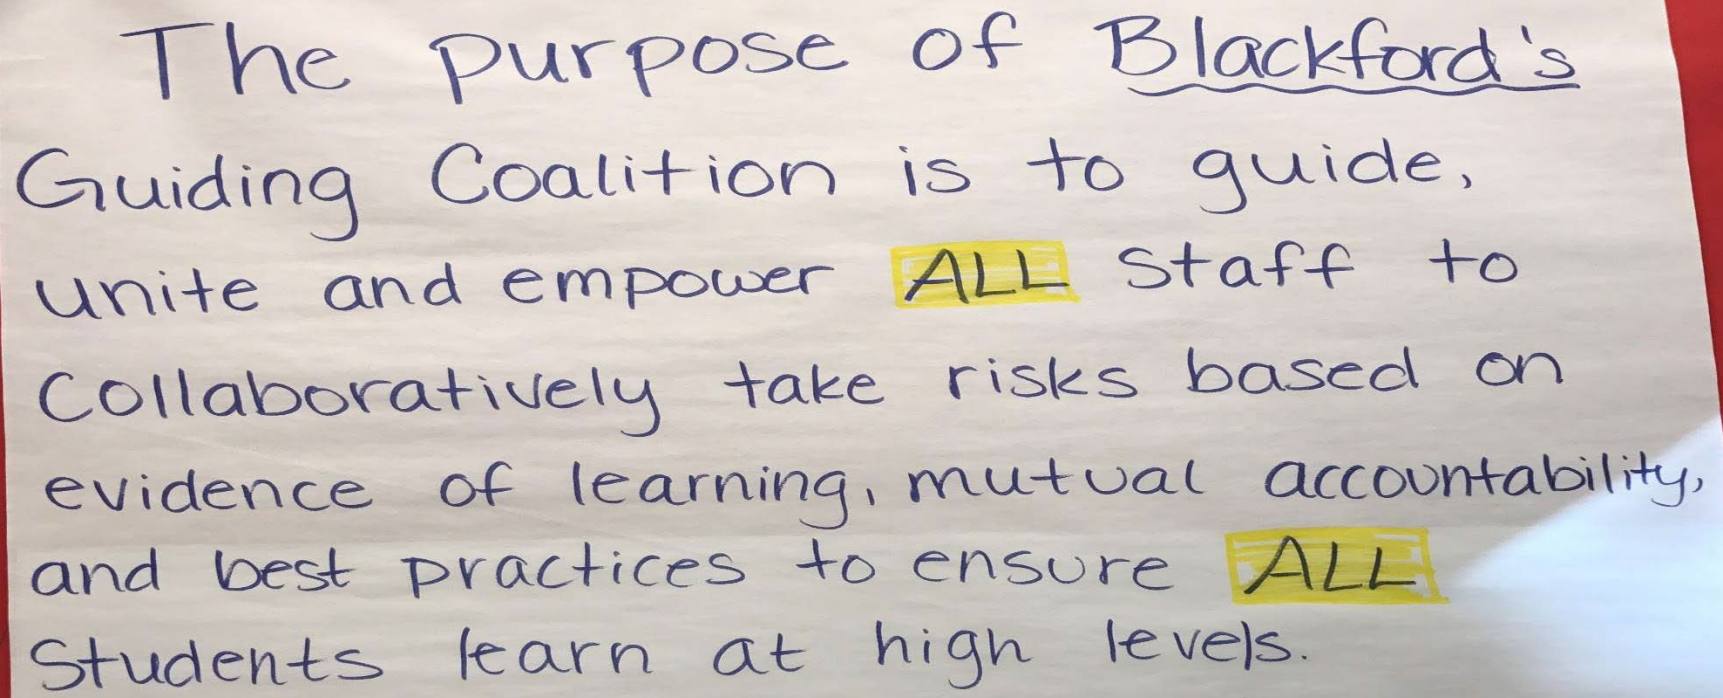 The purpose of Blackford's
Guiding Coalition is to guide,
unite and empower ALL staff to
Collaboratively take risks based on
evidence of learning, mutual accountability,
and best practices to ensure ALL
Students learn at high levels.